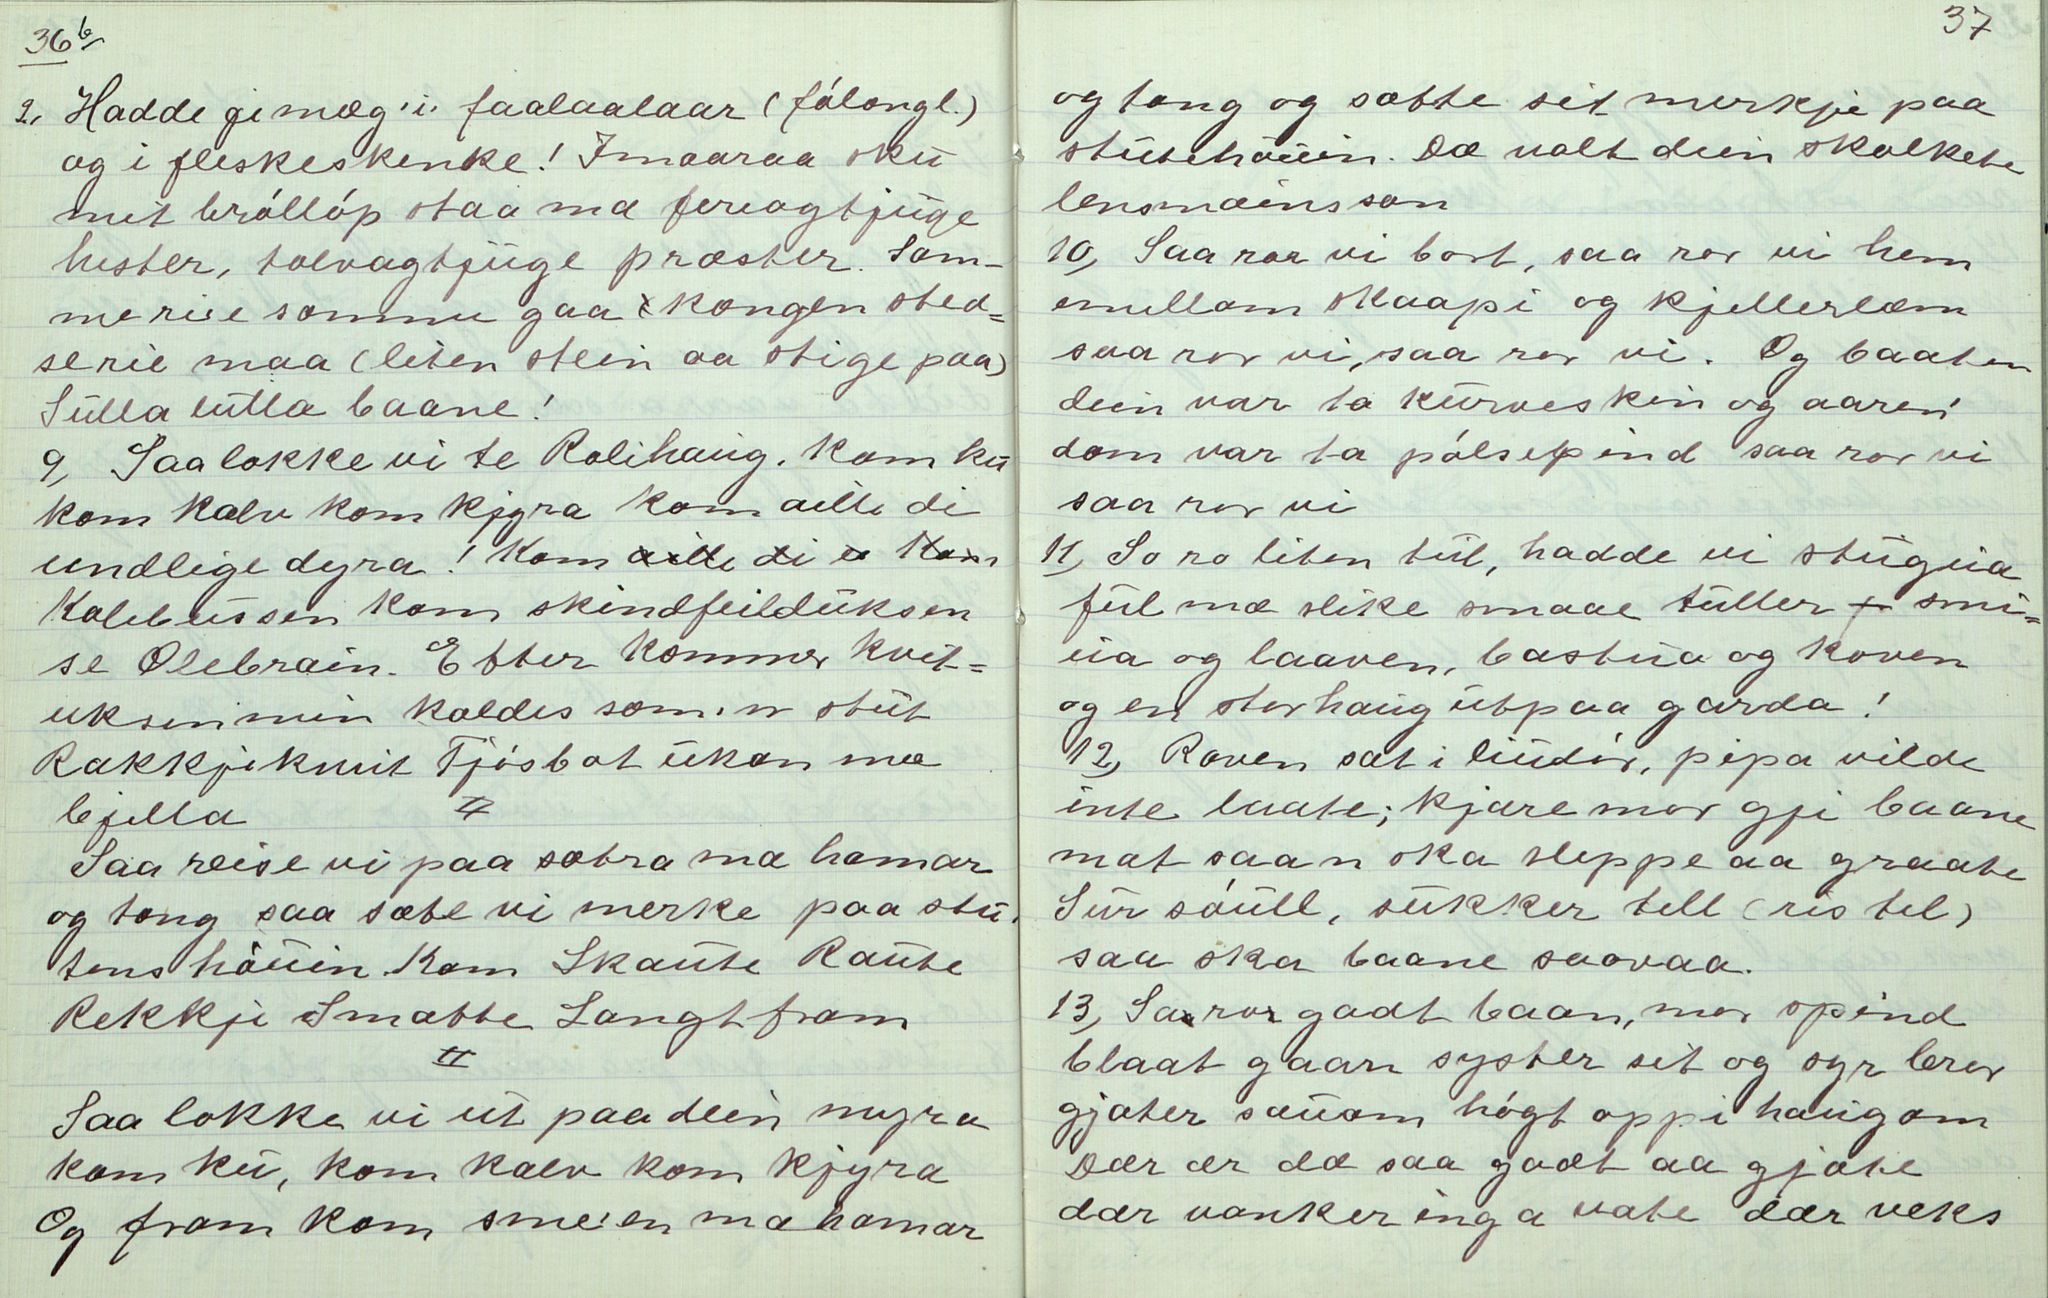 36 b
2, Hadde je mæg i faalaalaar (fólongl.)
og i fleskeskenke! Imaaraa sku
mit bróllóp staa mæ fireogtjuge
hester, tolvogtjuge præster. Som-
merie sommu gaa kongen sted=
serie maa (liten stein aa stige paa)
Sulla lulla baane!
9, Saa lokke vi te Rolihaug. Kom ku
kom kalv kom kjyra kom aille di
undlige dyra! Kom aille di u Kom
Kalvbussen kom skindfeilduksen
se Olebrain. Etter kommer kvit=
uksen min kaldes som'n stut
Rakkjiknut Tjósbot ukon mæ
bjella
II
Saa reise vi paa sætra mæ hamar
og tong saa sæte vi merke paa stu-
tens hóuin. Kom Skaute Raute
Rekkji Smatte Langtfram
II
Saa lokke vi ut paa dein myra
kom ku, kom kalv kom kjyra
Og fram kom smeien mæ hamar
37
og tong og sætte sit merkje paa
stutehóuin. Dæ valt dein skolkete
lensmæinsson
10, Saa ror vi bort, saa ror vi hem
emellom skaapi og kjellerlæm
saa ror vi, saa ror vi. Og baaten
dein var ta kurveskin og aaren
dom var ta pólsepind saa ror vi
saa ror vi
11, So ro liten tul, hadde vi stugua
ful mæ slike smaae tuller smi=
ua og laaven, bastua og koven
og en stor haug utpaa garda!
12, Raven sat i liudór, pipa vilde
inte laate; kjære mor gji baane
mat saa n ska sleppe aa graate
Sur sóull, sukker tell (ris tel)
saa ska baane saavaa.
13, Sa ror godt baan, mor spind
blaat gaan syster sit og syr bror
gjæter sauom hógt opp i haugom
Dær ær dæ saa godt aa gjæte
dær vanker inga væte dær veks